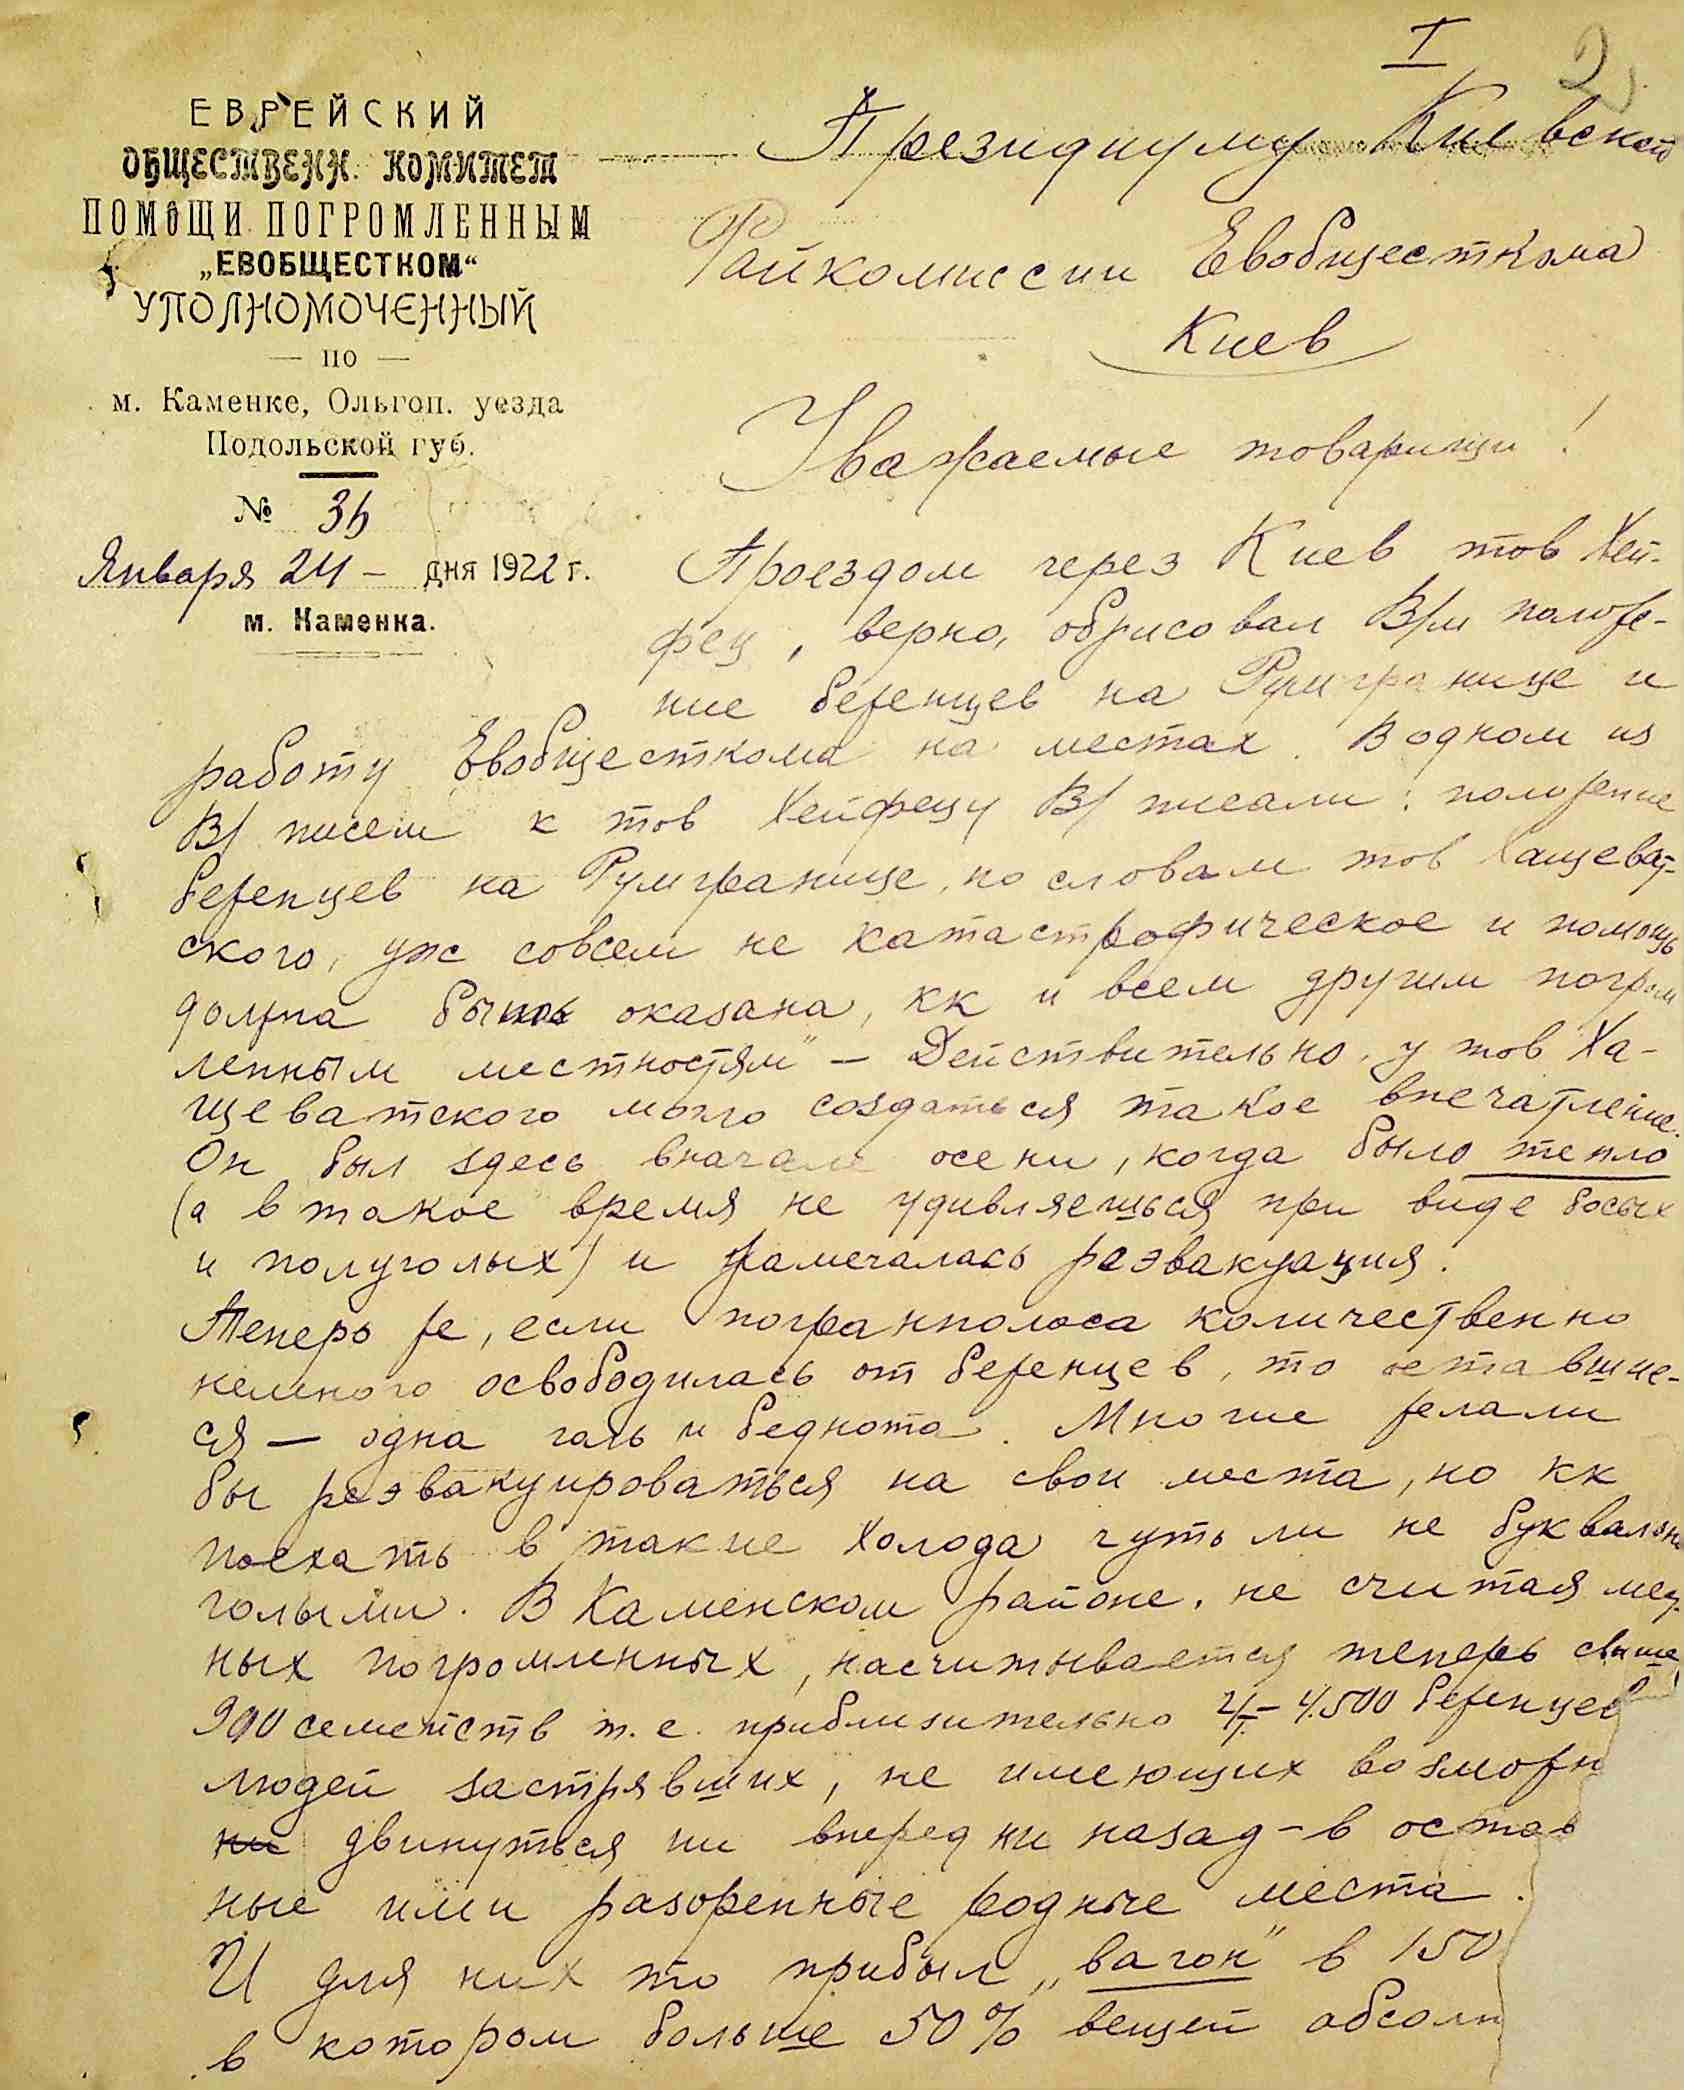 I
2
ЕВРЕЙСКИЙ
ОБЩЕСТВЕНН. КОМИТЕТ
ПОМОЩИ ПОГРОМЛЕННЫМ
„ЕВОБЩЕСТКОМ“
УПОЛНОМОЧЕННЫЙ
— по —
м. Каменке, Ольгоп. уезда
Подольской губ.
№ 36
Января 24 – дня 1922 г.
м. Каменка.
Президиуму Киевской
Райкомиссии Евобщесткома
Киев
Уважаемые товарищи!
Проездом через Киев тов Хей-
фец, верно, обрисовал В/м положе-
ние беженцев на Румгранице и
работу Евобщесткома на местах. В одном из
В/ писем к тов Хейфецу В/ писали: положение
беженцев на Румгранице, по словам тов Хащеват-
ского, уж совсем не катастрофическое и помощь
должна быть оказана, кк и всем другим погром
ленным местностям" – Действительно, у тов Ха-
щеватского могло создаться такое впечатление.
Он был здесь вначале осени, когда было тепло
(а в такое время не удивляешься при виде босых
и полуголых) и намечалась реэвакуация.
Теперь же, если погранполоса количественно
немного освободилась от беженцев, то оставшие-
ся – одна голь и беднота. Многие желали
бы реэвакуироваться на свои места, но кк
поехать в такие холода чуть ли не буквально
голыми. В Каменском районе, не считая мест-
ных погромленных, насчитывается теперь свыше
900 семейств т.е. приблизительно 4 – 4.500 беженцев
людей застрявших, не имеющих возможн
ни двинуться ни вперед ни назад – в остав
ные ими разоренные родные места.
И для них то прибыл „вагон" в 150
в котором больше 50% вещей абсолю